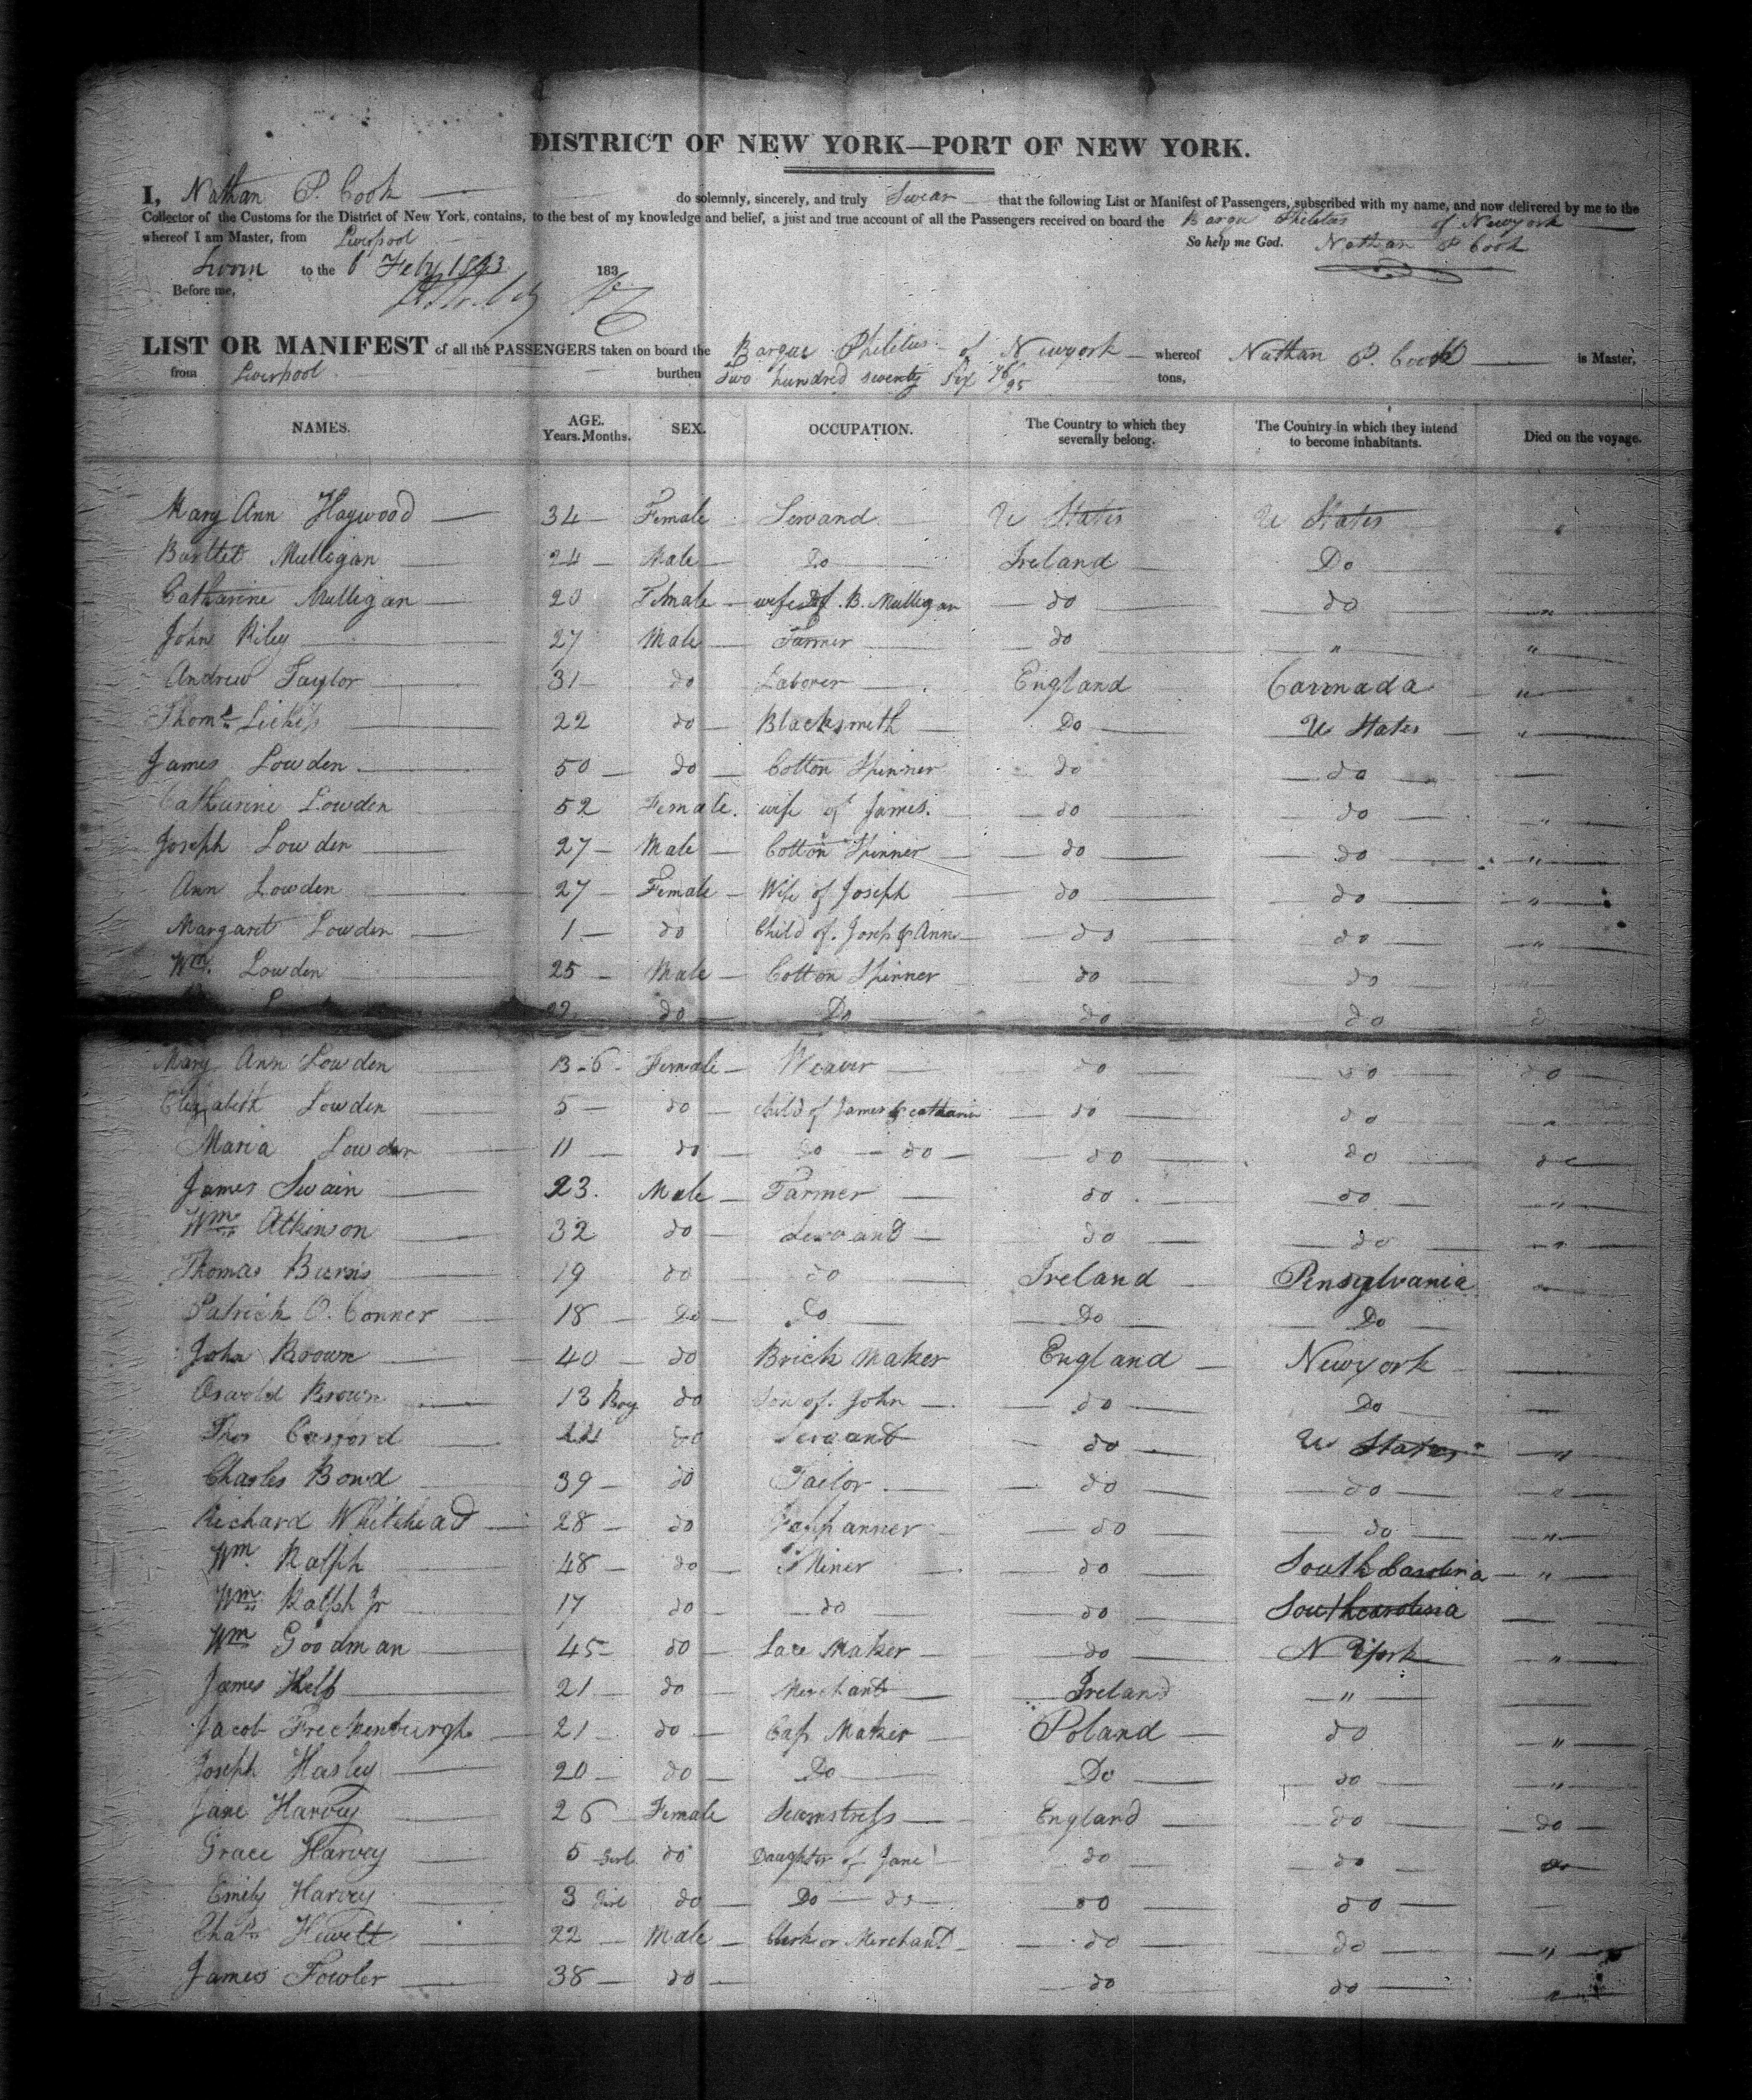 DISTRICT OF NEW YORK—PORT OF NEW YORK.
I, Nathan P. Cook do solemnly, sincerely, and truly Swear that the following List or Manifest of Passengers, subscribed with my name, and now delivered by me to the
Collector of the Customs for the District of New York, contains, to the best of my knowledge and belief, a just and true account of all the Passengers received on board the Barque Philetus of Newyork
whereof I am Master, from Liverpool So help me God. Nathan P Cook
Sworn to the 6 Feby 1843 183
Before me,
LIST OR MANIFEST of all the PASSENGERS taken on board the Barque Philetus of Newyork whereof Nathan P Cook is Master,
from Liverpool burthen Two hundred seventy Six 76/95 tons,
NAMES. AGE. Years. Months. SEX. OCCUPATION. The Country to which they severally belong. The Country in which they intend to become inhabitants. Died on the voyage.
Mary Ann Haywood 34 Female Servand U States U States "
Bartlet Mulligan 24 Male Do Ireland Do
Catharine Mulligan 20 Female wife of B. Mulligan do do "
John Riley 27 Male Farmer do " "
Andrew Taylor 31 do Laborer England Cannada "
Thoms 22 do Blacksmith Do U States "
James Lowden 50 do Cotton Spinner do do
Catharine Lowden 52 Female. wife of James. do do "
Joseph Lowden 27 Male Cotton Spinner do do "
Ann Lowden 27 Female Wife of Joseph do do "
Margaret Lowden 1 do Child of. Josph & Ann do do "
Wm. Lowden 25 Male Cotton Spinner do do
22 do Do do do
Mary Ann Lowden 13-6 Female Weaver do do do
Elizabeth Lowden 5 do child of James & catharin do do "
Maria Lowden 11 do Do do do do do
James Swain 23. Male Farmer do do "
Wm Atkinson 32 do Servand do do "
Thomas Burns 19 do do Ireland Pensylvania
Patrick O. Conner 18 Do Do Do Do
John Brown 40 do Brick Maker England Newyork
Oswold Brown 13 Boy do Son of. John do Do
Thos 22 do Servant do U States "
Charles Bowd 39 do Tailor do do "
Richard Whitehead 28 do Jappanner do do "
Wm. Ralph 48 do Miner do South Carolina "
Wm Ralph Jr 17 do do do Southcarolina
Wm Goodman 45 do Lace Maker do N York "
James 21 do Merchant Ireland "
Jacob Freckenburgh 21 do Cap Maker Poland do "
Joseph Hasley 20 do Do Do do "
Jane Harvey 26 Female Seamstress England do do
Grace Harvey 5 Girl do Daughter of Jane do do do
Emily Harvey 3 Girl do Do do do do
Chas Hewett 22 Male Clerk or Merchant do do "
James Fowler 38 do do do "